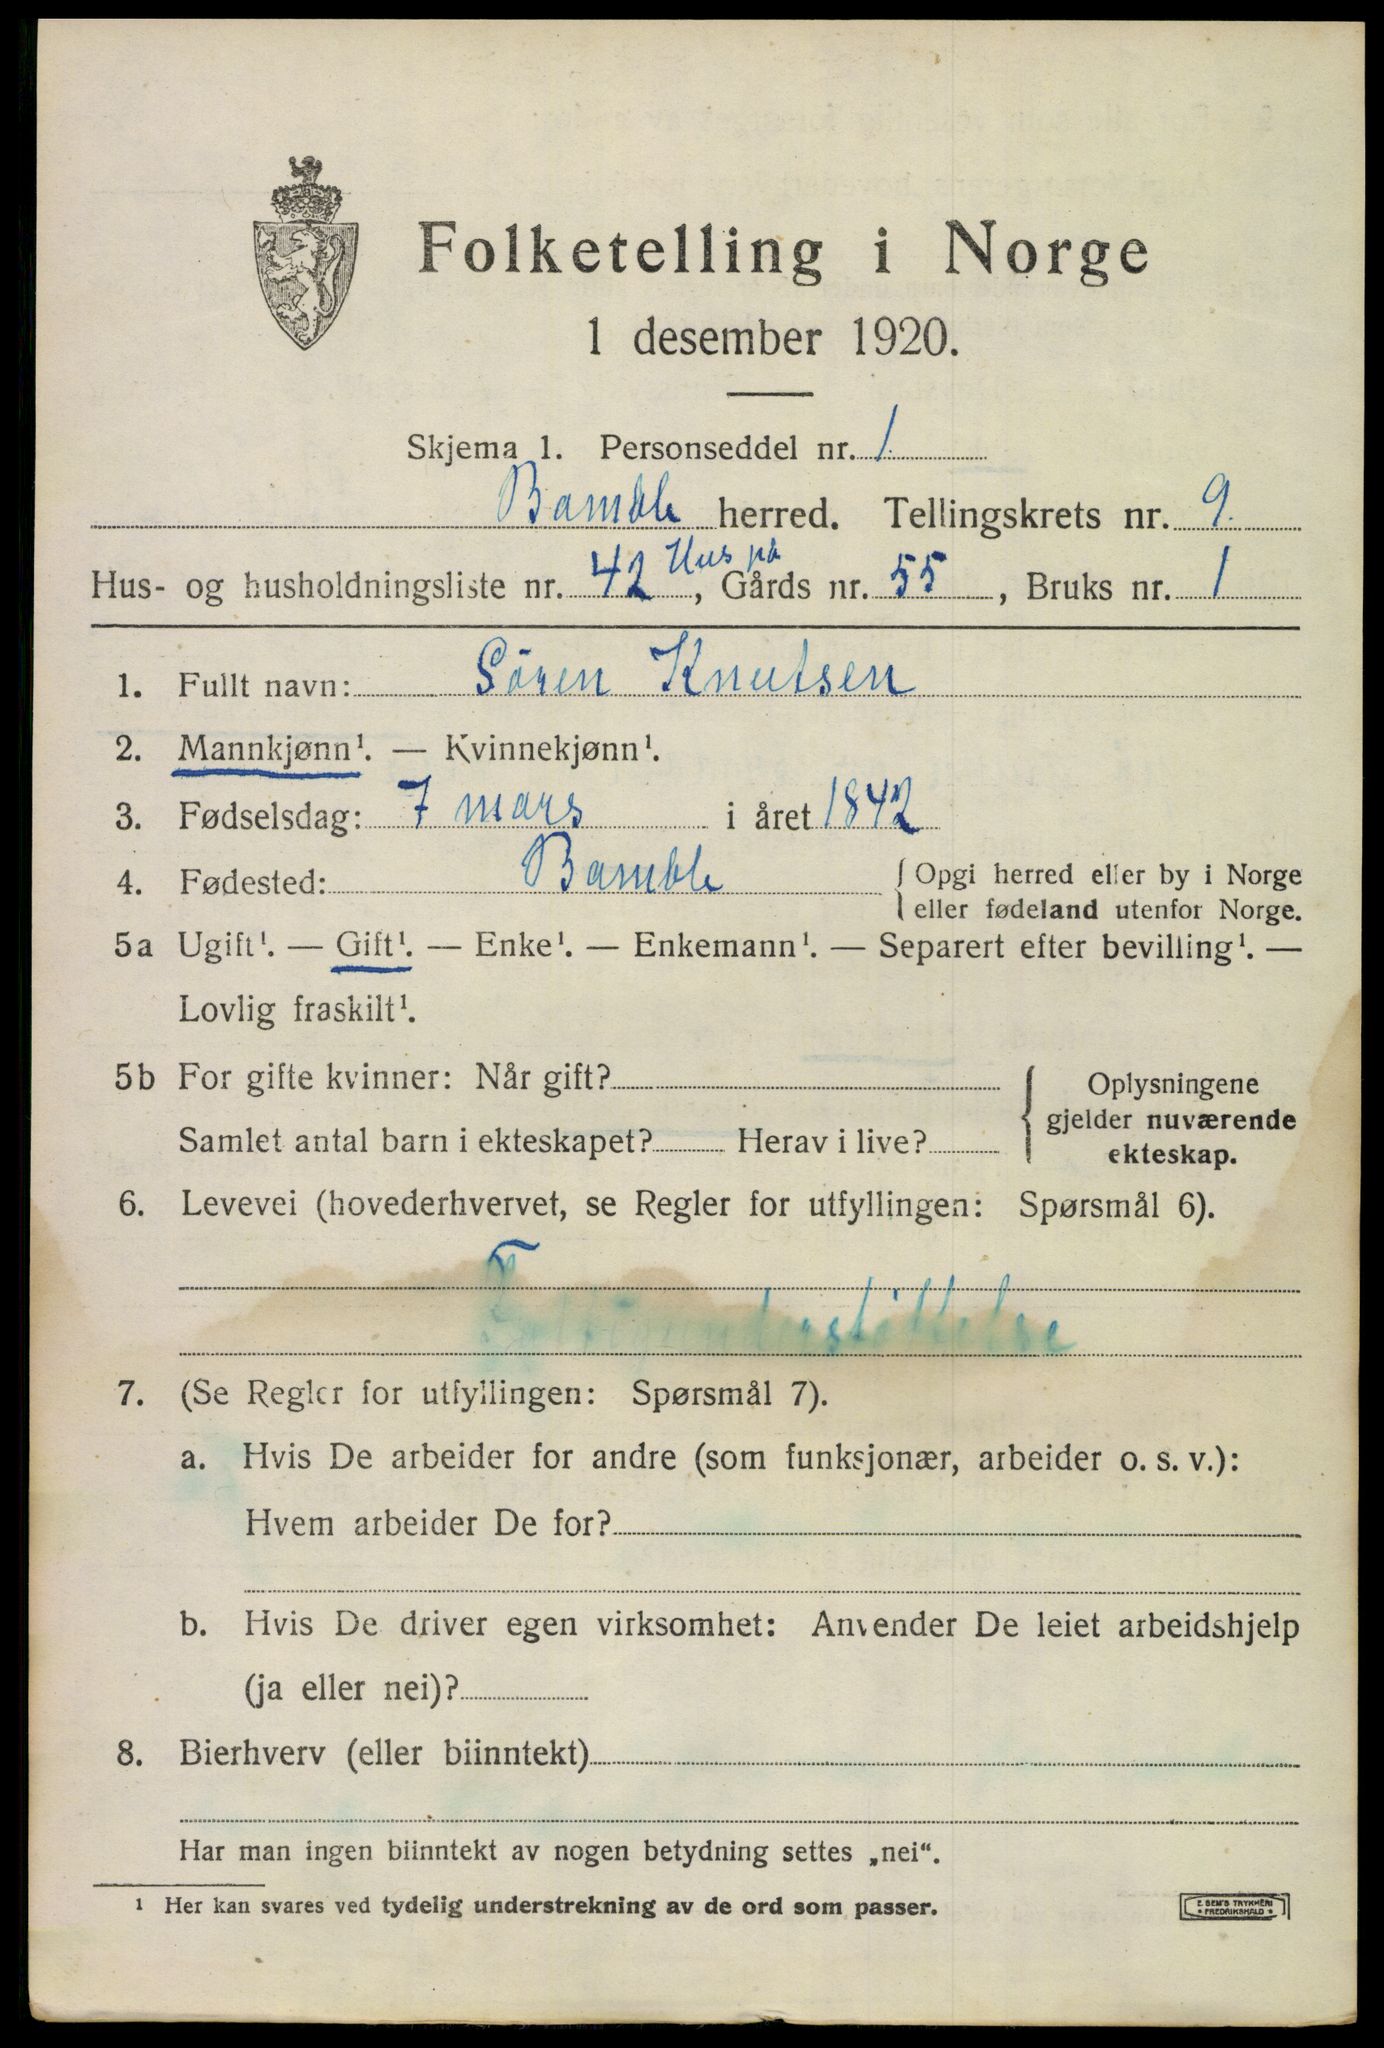 Folketelling i Norge
1 desember 1920.
Skjema 1. Personseddel nr. 1.
Bamble herred. Tellingskrets nr. 9.
Hus- og husholdningsliste nr. 42 Hus på, Gårds nr. 55, Bruks nr. 1
1. Fullt navn: Sören Knutsen
2. Mannkjønn¹. — Kvinnekjønn¹.
3. Fødselsdag: 7 mars i året 1842
4. Fødested: Bamble { Opgi herred eller by i Norge
eller fødeland utenfor Norge.
5a Ugift¹. — Gift¹. — Enke¹. — Enkemann¹. — Separert efter bevilling¹. —
Lovlig fraskilt¹.
5b For gifte kvinner: Når gift? { Oplysningene
gjelder nuværende
Samlet antal barn i ekteskapet? Herav i live?
ekteskap.
6. Levevei (hovederhvervet, se Regler for utfyllingen: Spørsmål 6).
Fattigunderstöttelse
7. (Se Regler for utfyllingen: Spørsmål 7).
a. Hvis De arbeider for andre (som funksjonær, arbeider o. s. v.):
Hvem arbeider De for?
b. Hvis De driver egen virksomhet: Anvender De leiet arbeidshjelp
(ja eller nei)?
8. Bierhverv (eller biinntekt)
Har man ingen biinntekt av nogen betydning settes „nei“.
¹ Her kan svares ved tydelig understrekning av de ord som passer.
E. SEM'S TRYKKERI
FREDRIKSHALD